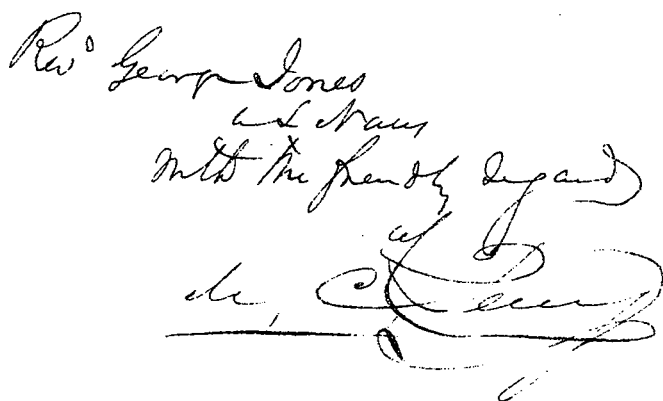 Revd George Jones
U S Navy
With the friendly regards
of
M. C. Perry